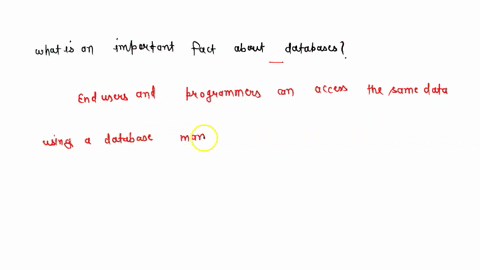 what is an important fact about databases?
End users and programmers can access the same data
using a database man